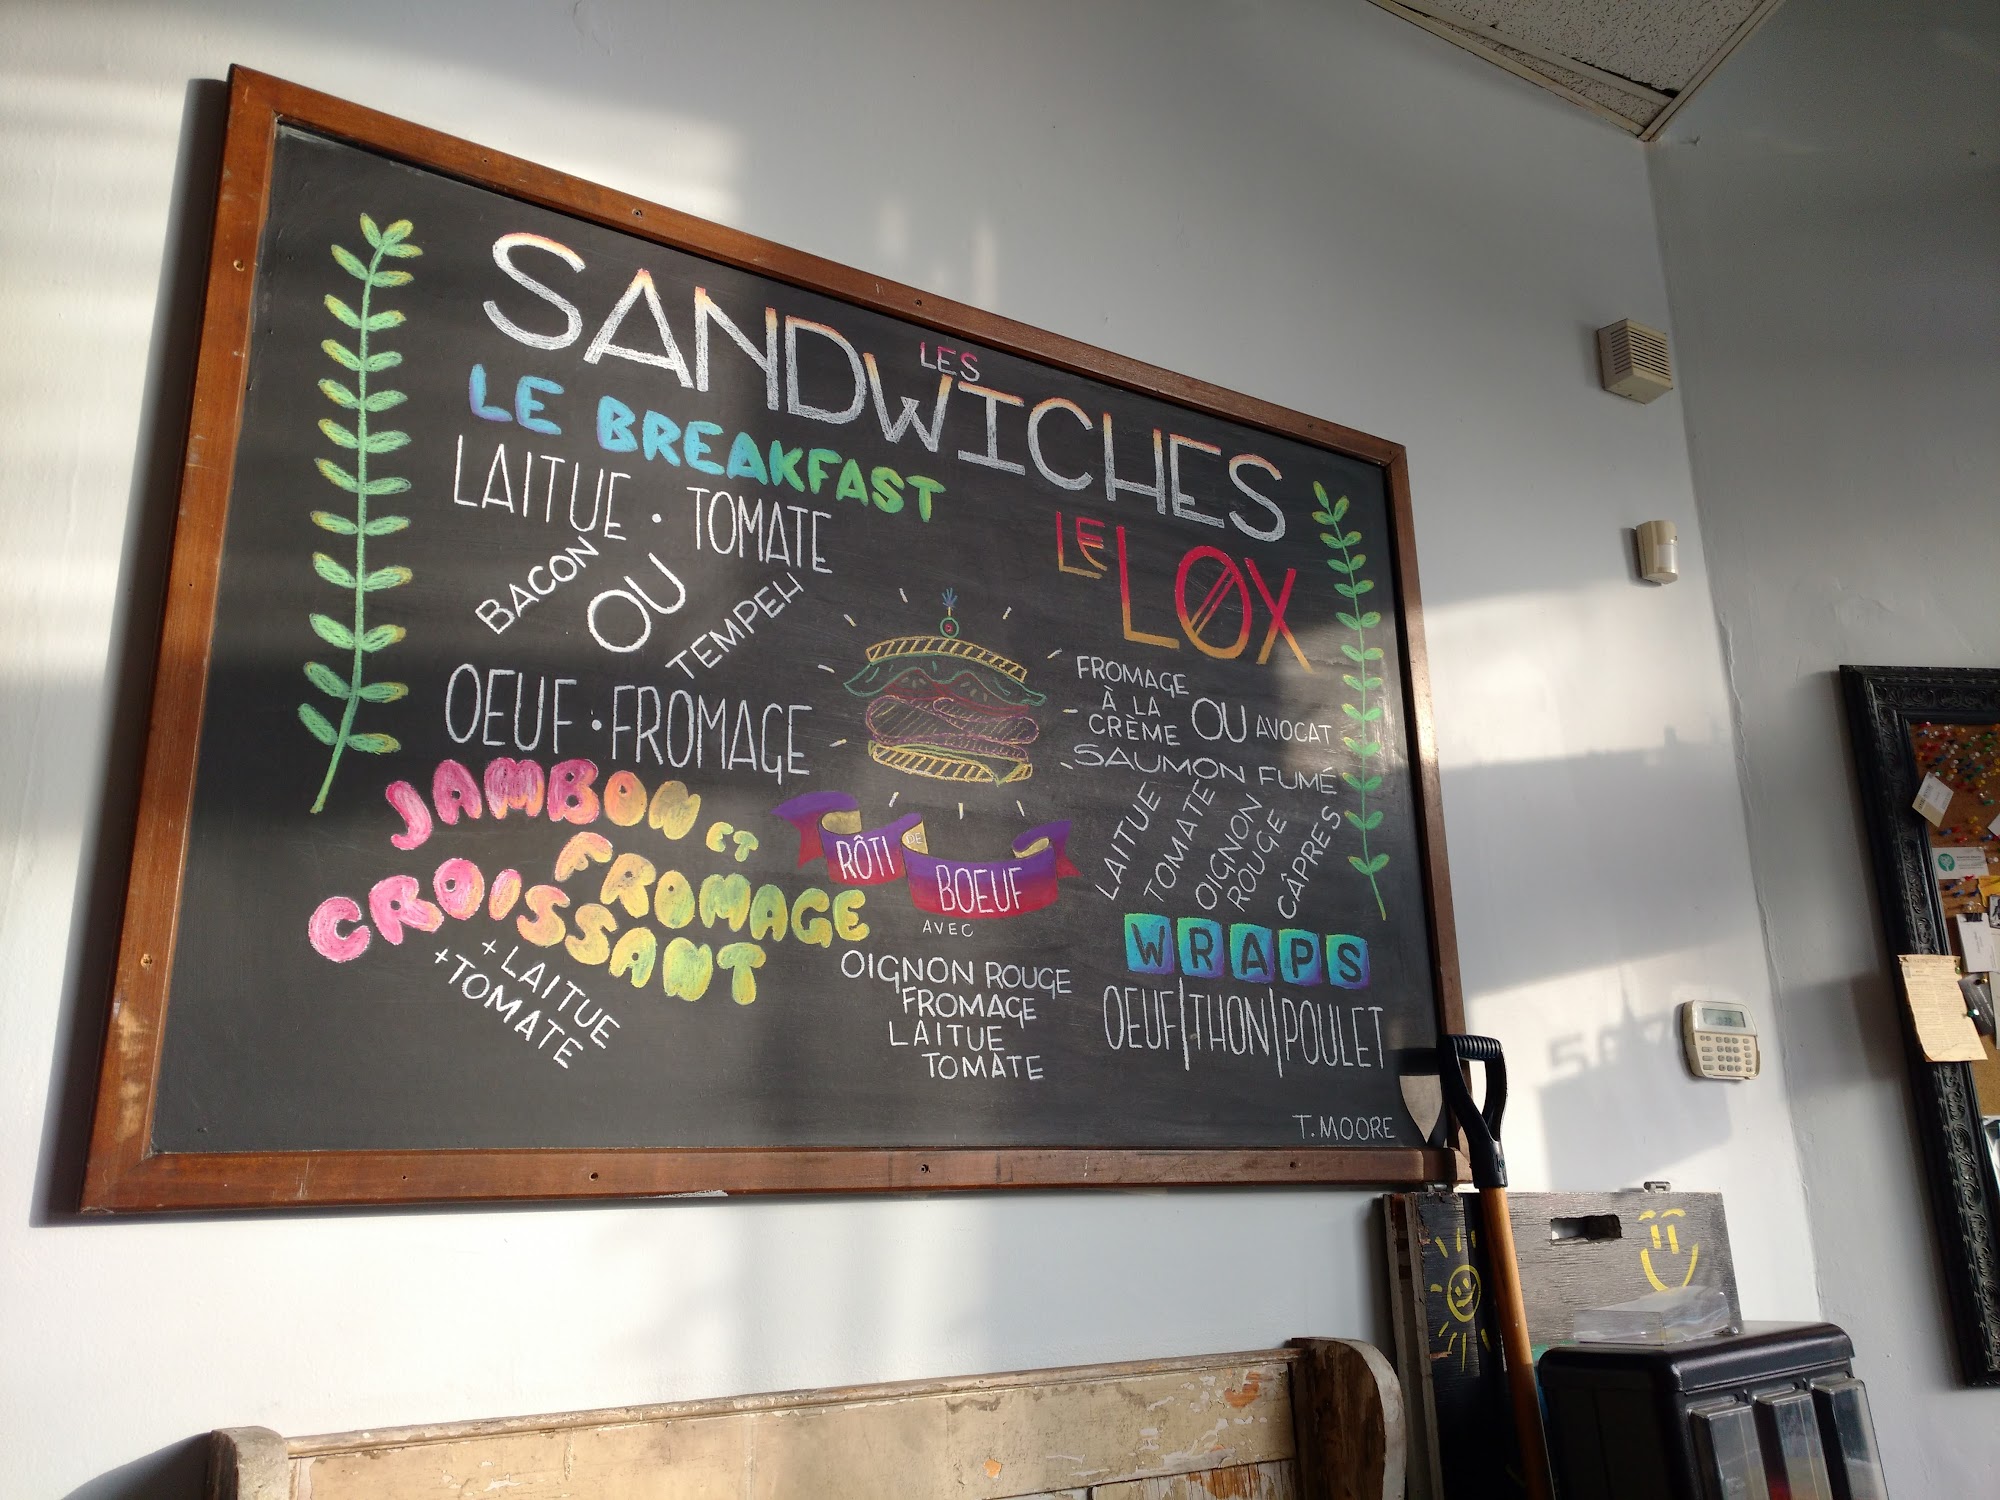 LES
SANDWICHES
LE BREAKFAST
LAITUE · TOMATE
BACON
OU
TEMPEH
OEUF · FROMAGE
JAMBON ET
FROMAGE
CROISSANT
+ LAITUE
+ TOMATE
RÔTI DE
BOEUF
AVEC
OIGNON ROUGE
FROMAGE
LAITUE
TOMATE
LE LOX
FROMAGE
À LA
CRÈME
OU AVOCAT
SAUMON FUMÉ
LAITUE
TOMATE
OIGNON
ROUGE
CÂPRES
WRAPS
OEUF|THON|POULET
T. MOORE